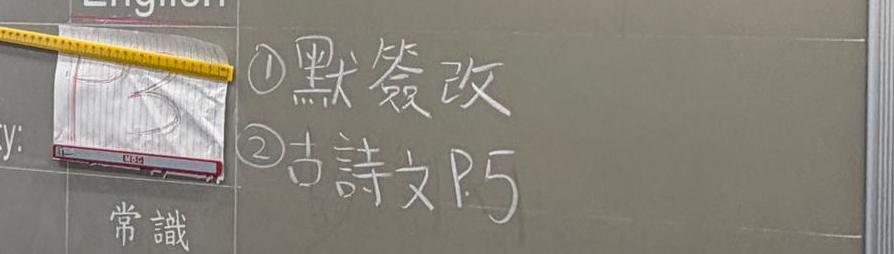 English
①默簽改
②古詩文P.5
y:
常識